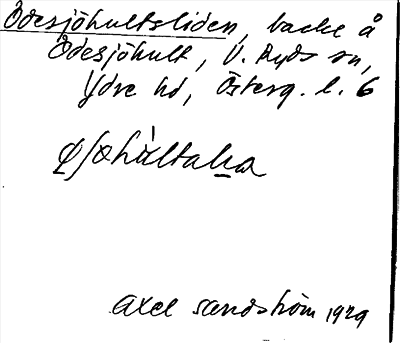 Ödesjöhultsliden, backe å
Ödesjöhult, V. Ryds sn,
Ydre hd, Österg. l. 6
Axel Sandström 1929